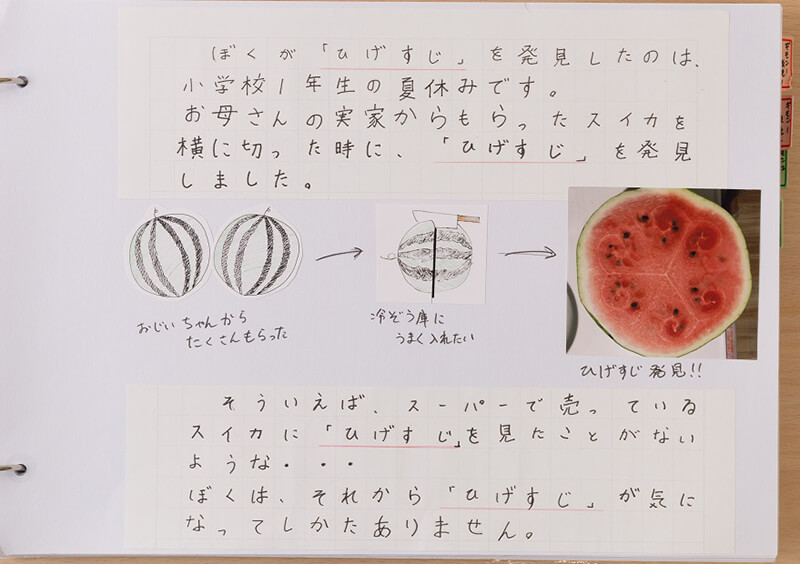 ぼくが「ひげすじ」を発見したのは、
小学校1年生の夏休みです。
お母さんの実家からもらったスイカを
横に切った時に、「ひげすじ」を発見
しました。
おじいちゃんから
たくさんもらった
冷ぞう庫に
うまく入れたい
ひげすじ発見!!
そういえば、スーパーで売っている
スイカに「ひげすじ」を見たことがない
ような・・・
ぼくは、それから「ひげすじ」が気に
なってしかたありません。